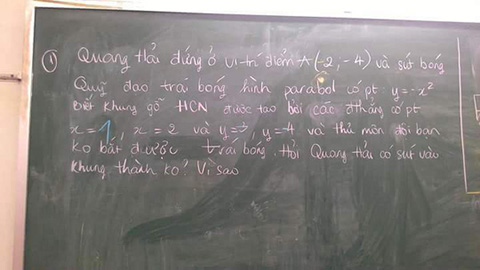 ① Quang Hải đứng ở vị trí điểm A(-2,-4) và sút bóng
Quỹ đạo trái bóng hình parabol có pt: y=-x²
Biết khung gỗ HCN được tạo bởi các đthẳng có pt
x=1, x=2 và y=-3, y=-4 và thủ môn đội bạn
ko bắt được trái bóng. Hỏi Quang Hải có sút vào
khung thành ko? Vì sao